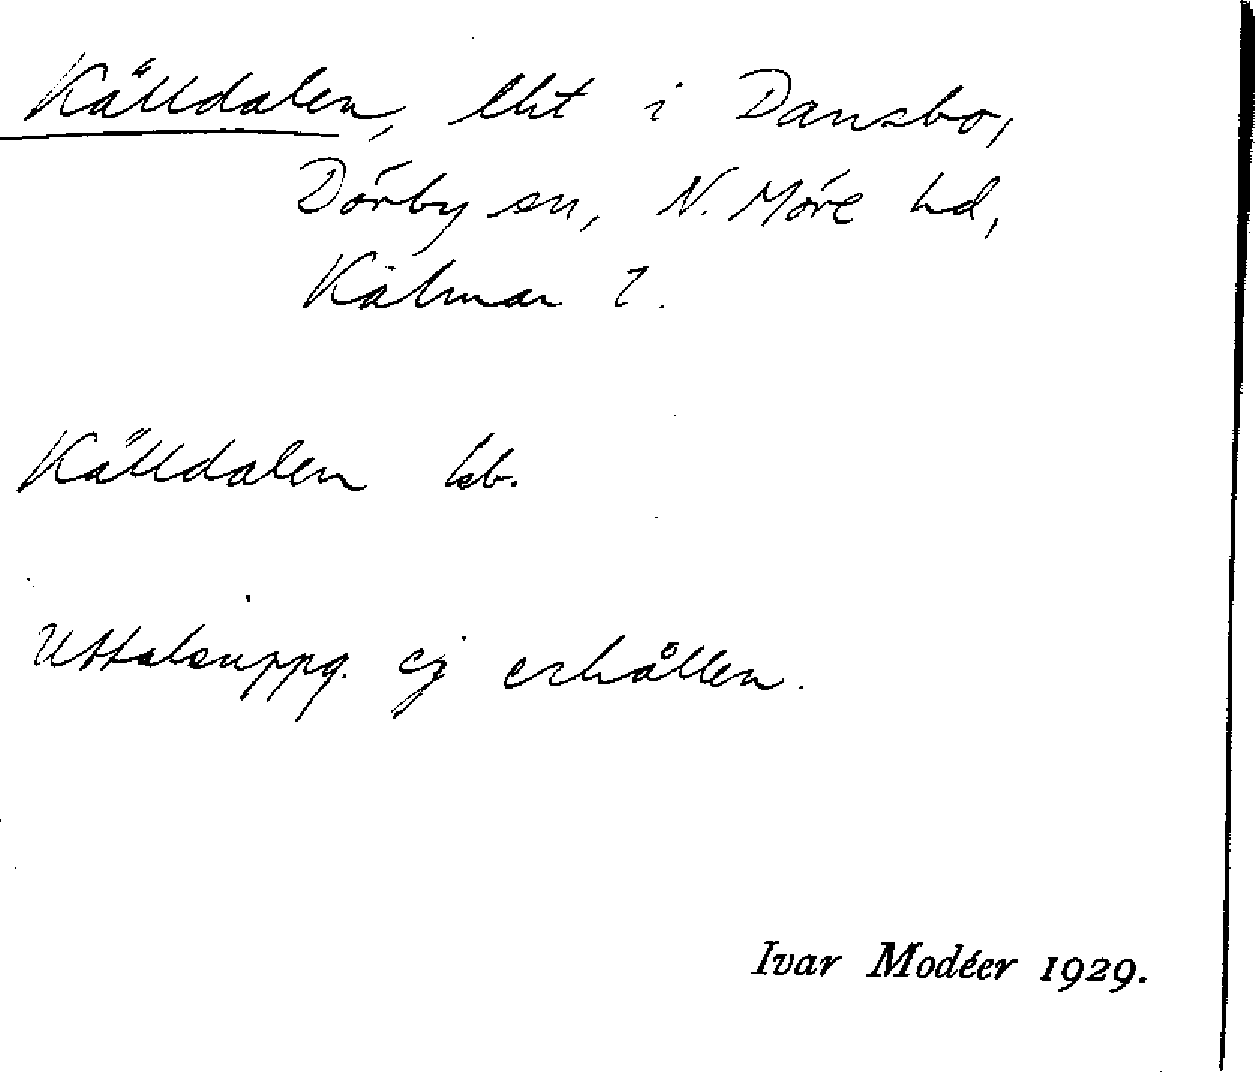 Källdalen, lht i Dansbo,
Dörby sn, N. Möre hd,
Kalmar l.
Källdalen kb.
Uttalsuppg. ej erhållen.
Ivar Modéer 1929.